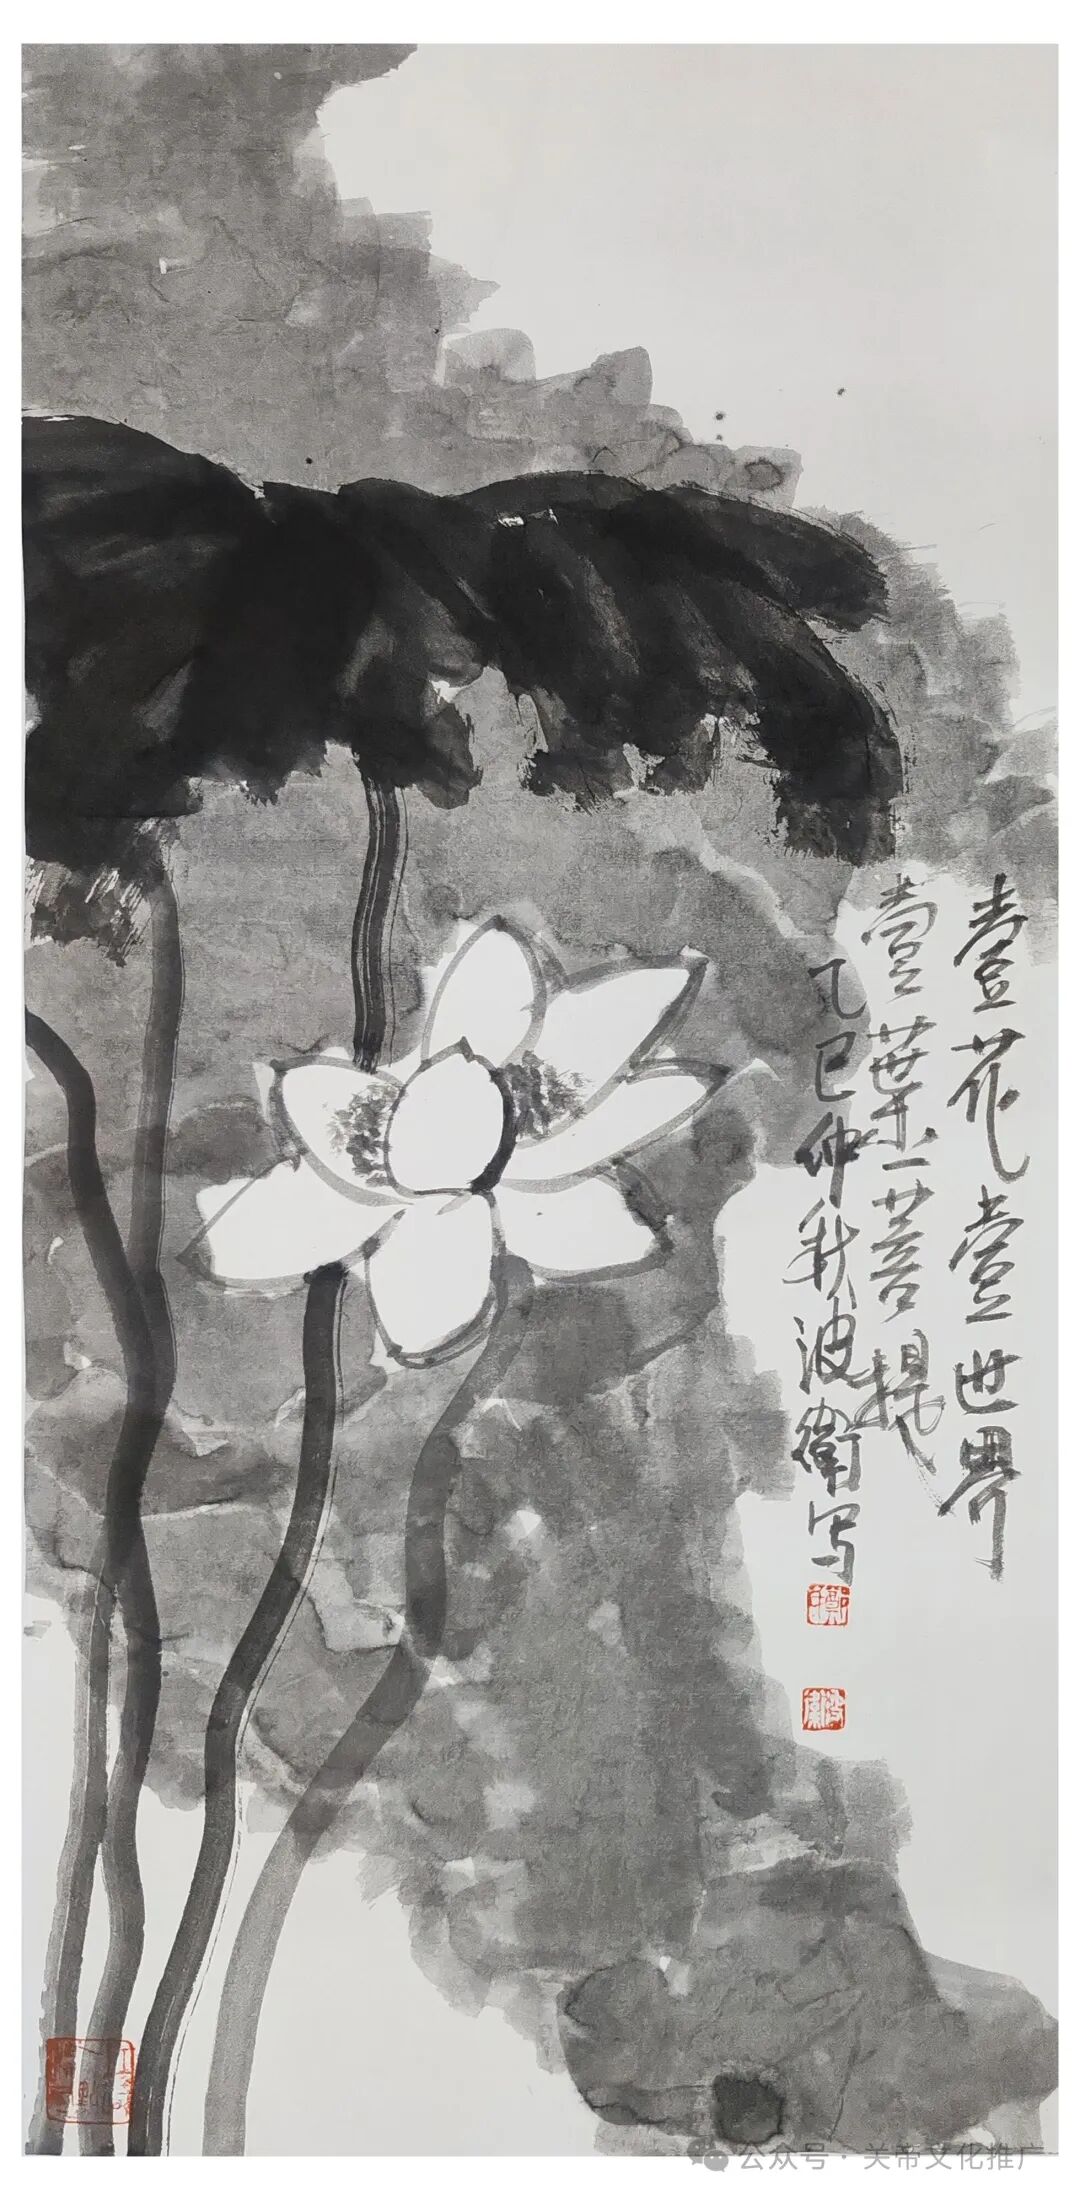 壹花壹世界
壹葉一菩提
乙巳仲秋波衛写
公众号·关帝文化推广